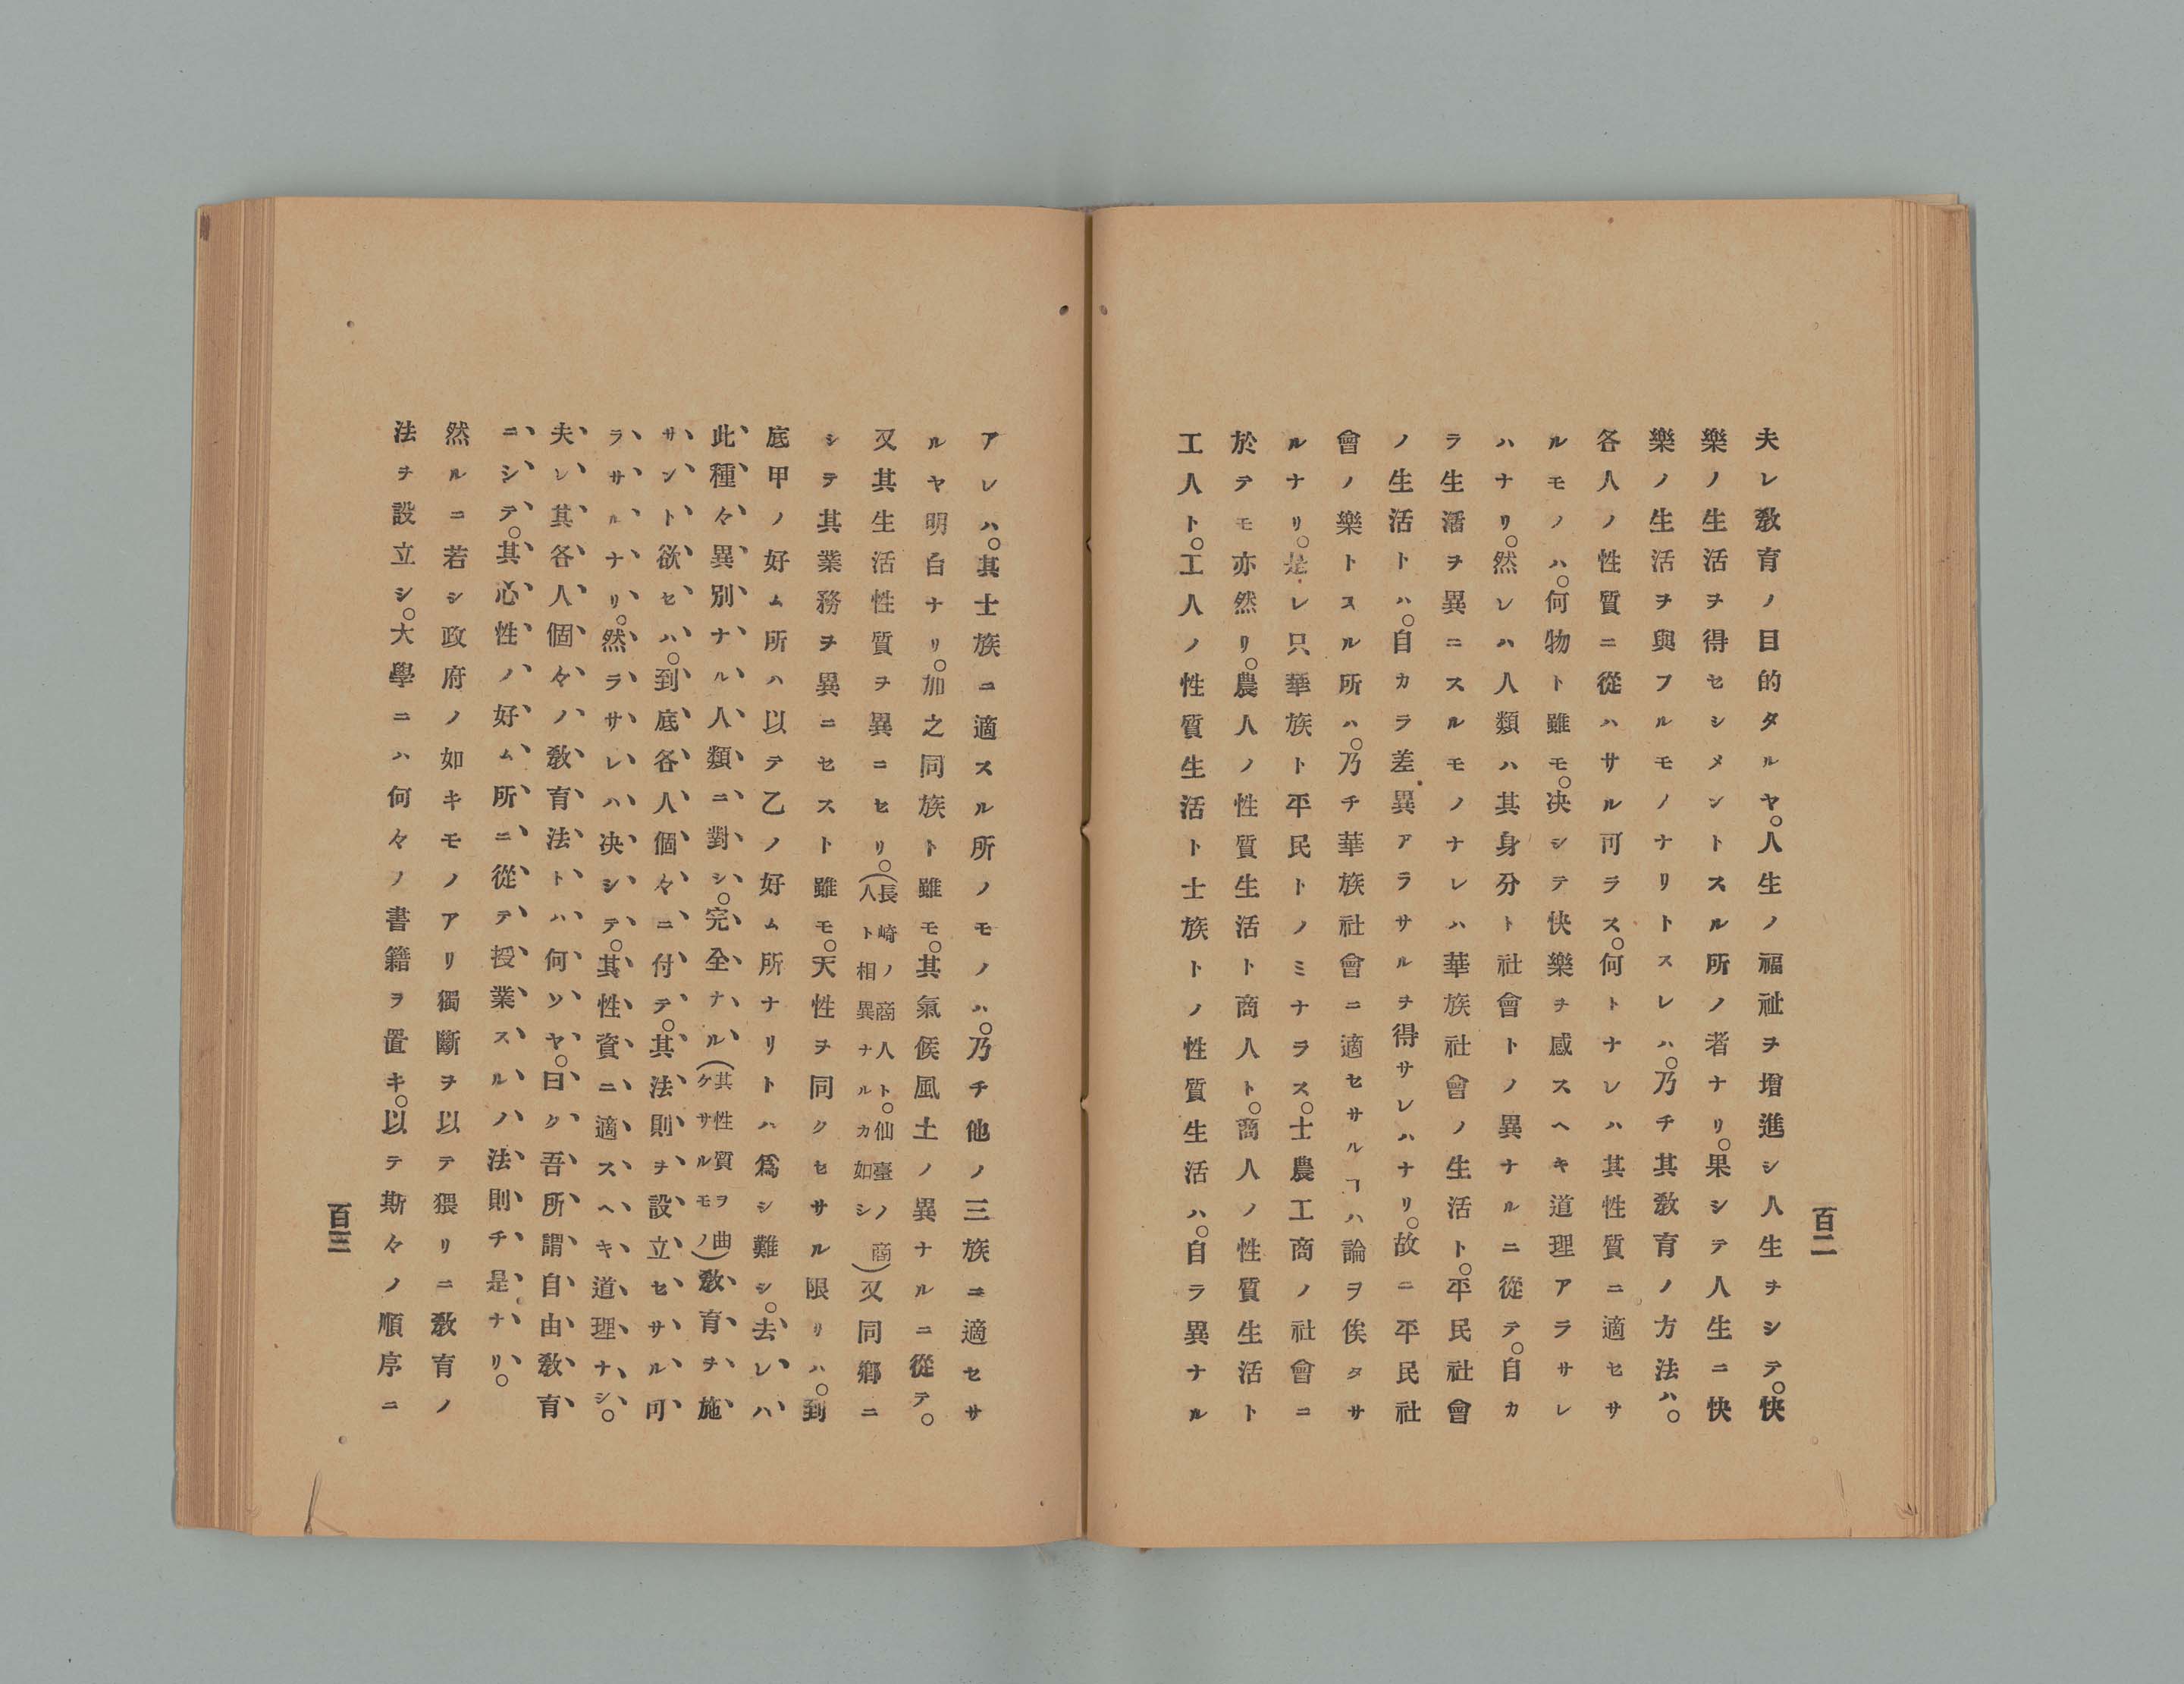 百二
夫レ敎育ノ目的タルヤ。人生ノ福祉ヲ增進シ人生ヲシテ。快
樂ノ生活ヲ得セシメントスル所ノ者ナリ。果シテ人生ニ快
樂ノ生活ヲ與フルモノナリトスレハ。乃チ其敎育ノ方法ハ。
各人ノ性質ニ從ハサル可ラス。何トナレハ其性質ニ適セサ
ルモノハ。何物ト雖モ。决シテ快樂ヲ感スヘキ道理アラサレ
ハナリ。然レハ人類ハ其身分ト社會トノ異ナルニ從テ。自カ
ラ生活ヲ異ニスルモノナレハ華族社會ノ生活ト。平民社會
ノ生活トハ。自カラ差異アラサルヲ得サレハナリ。故ニ平民社
會ノ樂トスル所ハ。乃チ華族社會ニ適セサルヿハ論ヲ俟タサ
ルナリ。是レ只華族ト平民トノミナラス。士農工商ノ社會ニ
於テモ亦然リ。農人ノ性質生活ト商人ト。商人ノ性質生活ト
工人ト。工人ノ性質生活ト士族トノ性質生活ハ。自ラ異ナル
アレハ。其士族ニ適スル所ノモノハ。乃チ他ノ三族ニ適セサ
ルヤ明白ナリ。加之同族ト雖モ。其氣候風土ノ異ナルニ從テ。
又其生活性質ヲ異ニセリ。(長崎ノ商人ト。仙臺ノ商人ト相異ナルカ如シ)又同鄕ニ
シテ其業務ヲ異ニセスト雖モ。天性ヲ同クセサル限リハ。到
底甲ノ好ム所ハ以テ乙ノ好ム所ナリトハ爲シ難シ。去レハ
此種々異別ナル人類ニ對シ。完全ナル(其性質ヲ曲ケサルモノ)敎育ヲ施
サント欲セハ。到底各人個々ニ付テ。其法則ヲ設立セサル可
ラサルナリ。然ラサレハ决シテ。其性資ニ適スヘキ道理ナシ。
夫レ其各人個々ノ敎育法トハ何ソヤ。曰ク吾所謂自由敎育
ニシテ。其心性ノ好ム所ニ從テ授業スルノ法則チ是ナリ。
然ルニ若シ政府ノ如キモノアリ獨斷ヲ以テ猥リニ敎育ノ
法ヲ設立シ。大學ニハ何々ノ書籍ヲ置キ。以テ斯々ノ順序ニ
百三